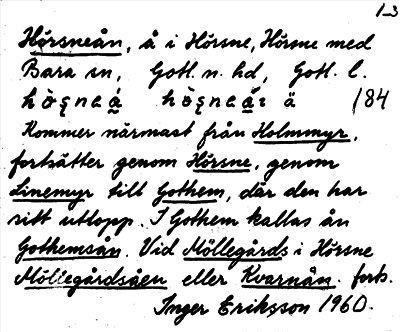 1_3
Hörsneån, å i Hörsne, Hörsne med
Bara sn, Gotl. n. hd, Gotl. l.
184
Kommer närmast från Holmmyr,
fortsätter genom Hörsne, genom
Linemyr till Gothem, där den har
sitt utlopp. I Gothem kallas ån
Gothemsån. Vid Möllegårds i Hörsne
Möllegårdsåen eller Kvarnån. forts.
Inger Eriksson 1960.